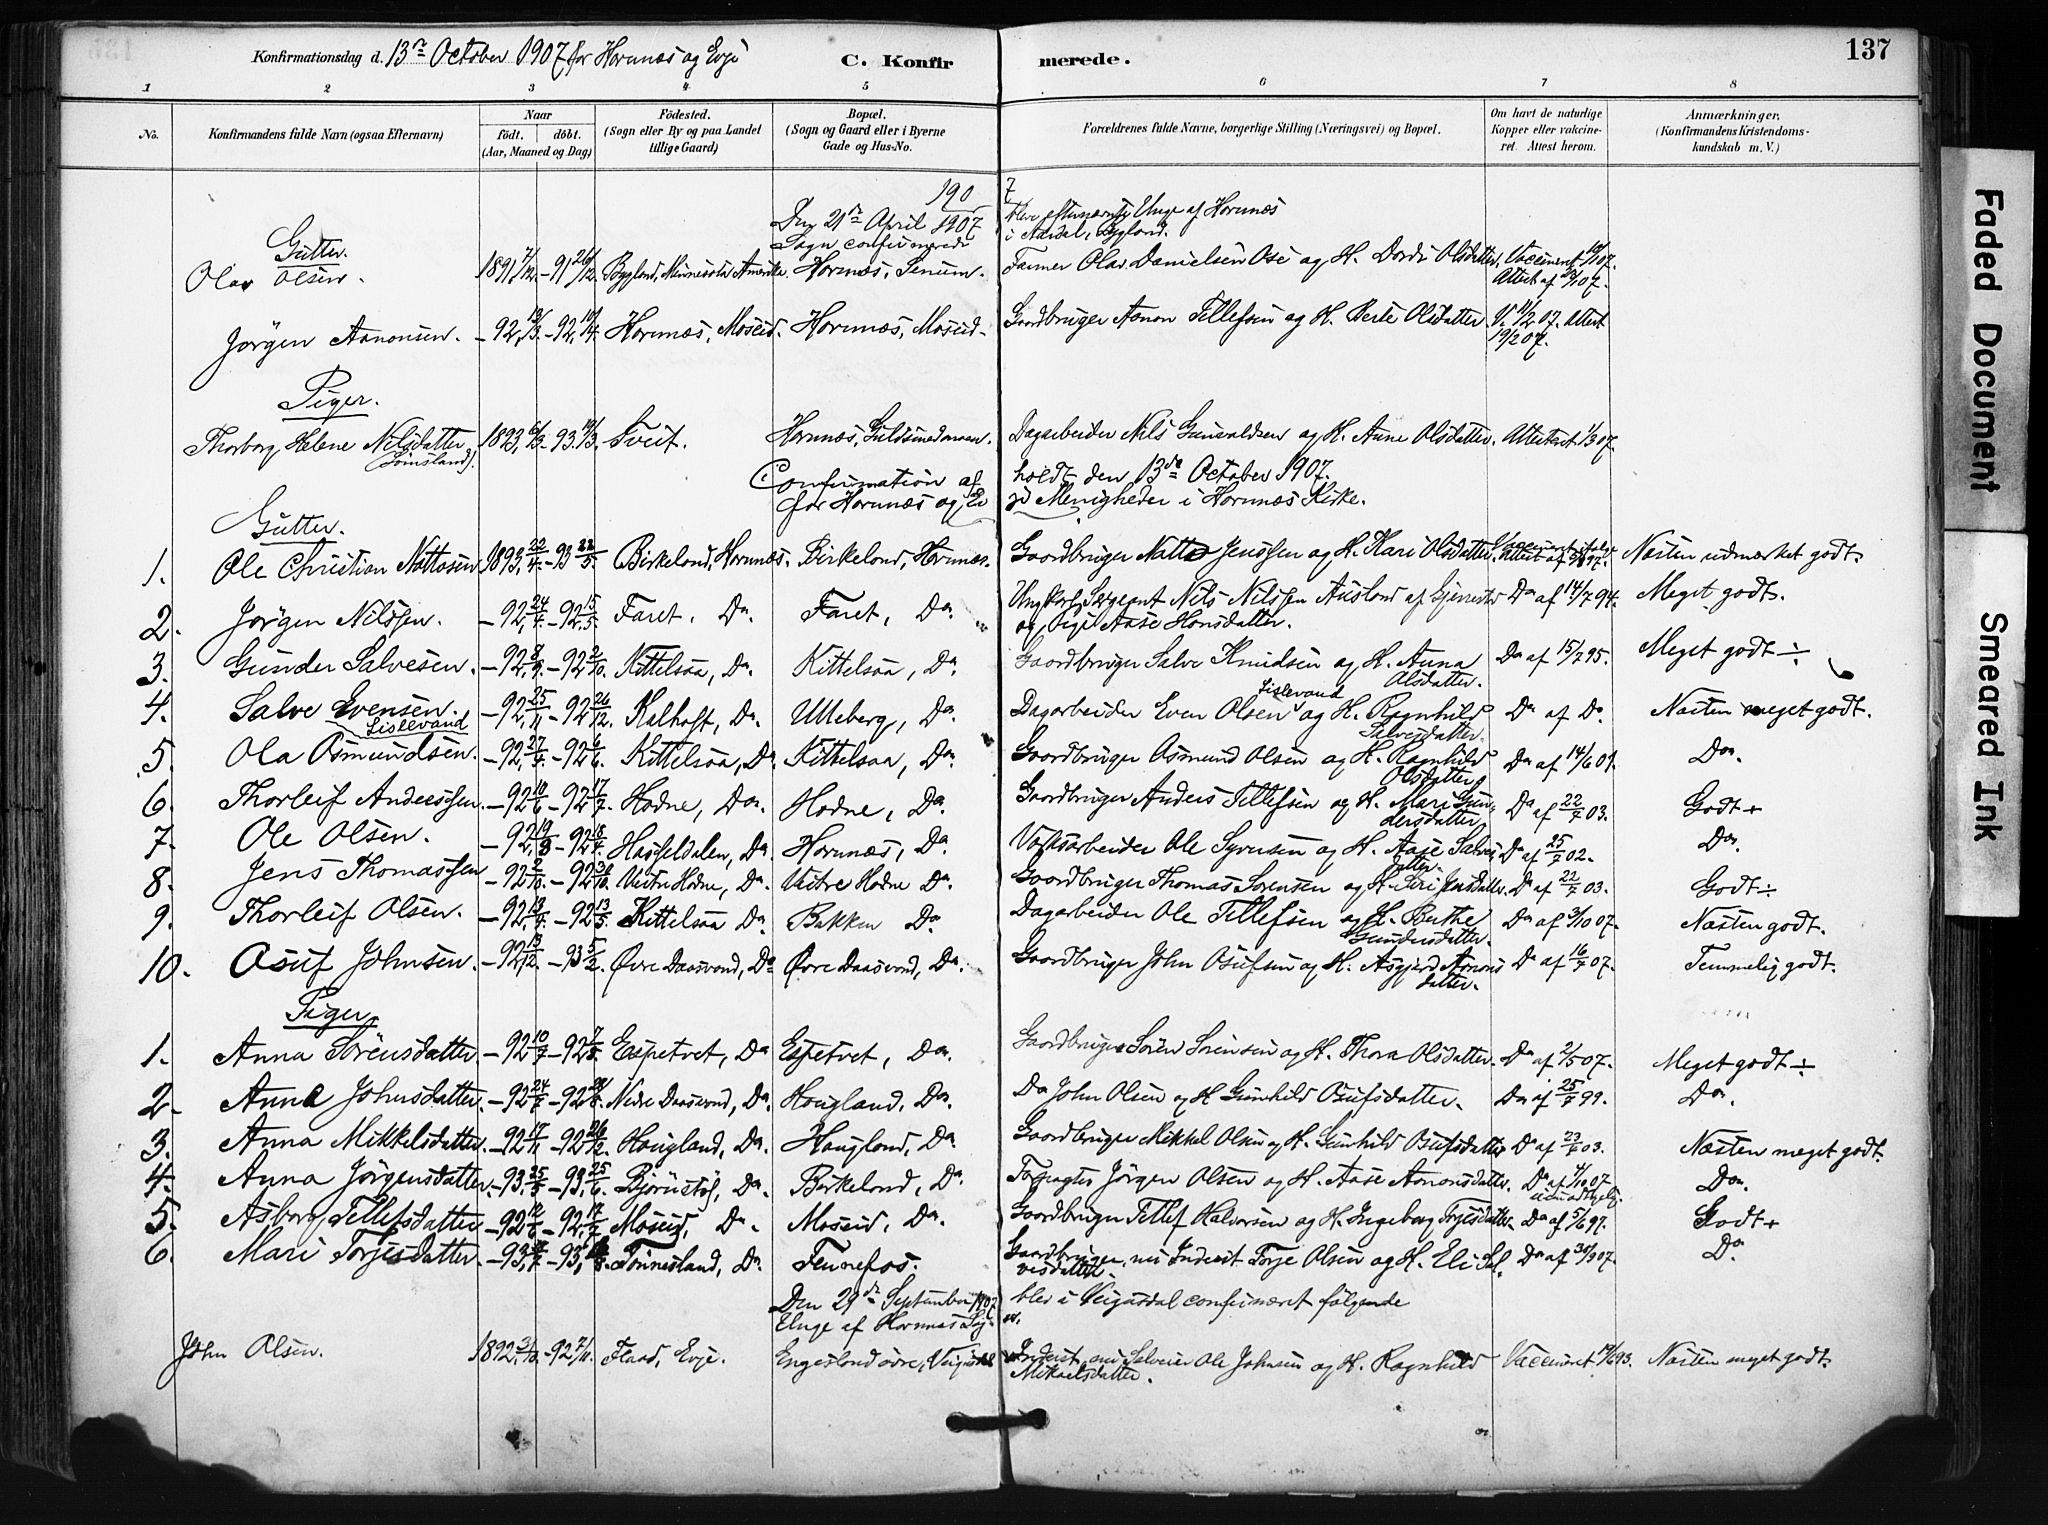 137
Konfirmationsdag d. 13de October 1907 for Hornnæs og Evje
C. Konfirmerede.
1 2 3 4 5 6 7 8
No.
Konfirmandens fulde Navn (ogsaa Efternavn)
Naar
födt. döbt.
(Aar, Maaned og Dag)
Födested.
(Sogn eller By og paa Landet
tillige Gaard)
Bopæl.
(Sogn og Gaard eller i Byerne
Gade og Hus-No.
Forældrenes fulde Navne, borgerlige Stilling (Næringsvei) og Bopæl.
Om havt de naturlige
Kopper eller vakcineret. Attest herom.
Anmærkninger.
(Konfirmandens Kristendomskundskab m. V.)
1907
Den 21de April 1907 blev efternævnte Unge af Hornnæs
Sogn confirmerede i Aardal, Bygland.
Gutter.
Olav Olsen. 1891 7/12. -91 26/12. Bygland, Minnesota Amerika. Hornnæs, Senum. Farmer Olav Danielsen Ose og H. Dordi Olsdatter. Vaccineret
Jörgen Aanonsen. -92, 13/3. -92, 10/4. Hornnæs, Moseid. Hornnæs, Moseid. Gaardbruger Aanon Tellefsen og H. Berte Olsdatter. V. 11/2 07. Attest
19/2 07.
Piger.
Thorborg Helene Nilsdatter 1893, Tveit. Hornnæs, Guldsmedmoen. Dagarbeider Nils Gunvaldsen og H. Anne Olsdatter. Attesteret 1/3 07.
(Tømsland).
Confirmation afholdt den 13de October 1907.
for Hornnæs og Evje Menigheder i Hornnæs Kirke.
Gutter.
1. Ole Christian Nottosen 1893, 22/4. -93 22/5. Birkeland, Hornnæs. Birkeland, Hornnæs. Gaardbruger Notto Jenssen og H. Kari Olsdatter. Næsten udmærket godt.
2. Jörgen Nilssen. -92, 24/4. -92, 15/5. Faret, Do. Faret, Do. Ungkarl, Sergeant Nils Nilssen Ausland af Gjerrestad Do af 14/7 94. Meget godt.
og Pige Aase Hansdatter.
3. Gunder Salvesen. -92, 8/9. -92 2/10. Kittelsaa, Do. Kittelsaa, Do. Gaardbruger Salve Knudsen og H. Anna Olsdatter. Do af 15/7 95. Meget godt ÷
4. Salve Evensen. Lislevand -92, 25/11 -92 26/12. Kalhoft, Do. Uleberg, Do. Dagarbeider Even Olsen Lislevand og H. Ragnhild Salvesdatter. Do af Do. Næsten meget godt.
5. Ola Osmundsen. -92, 27/4. -92 6/6. Kittelsaa, Do. Kittelsaa, Do. Gaardbruger Osmund Olsen og H. Ragnhild Olsdatter Do af 14/6 01. Do.
6. Thorleif Anderssen. -92 10/6 -92 17/7. Hodne, Do. Hodne, Do. Gaardbruger Anders Tellefsen og H. Mari Gundersdatter Do af 22/7 03. Godt +
7. Ole Olsen. -92, 19/3 -92 18/4. Hasseldalen, Do. Hornnæs, Do. Ole Syversen og H. Aase Salvesdatter. Do af 25/7 02. Do.
8. Jens Thomassen -92 2/10. -92 Vestre Hodne, Do. Vestre Hodne Do. Gaardbruger Thomas Sörensen og H. Siri Jensdatter. Do af 22/7 03. Godt ÷
9. Thorleif Olsen. -92, 13/4. -92 13/5. Kittelsaa Do. Bakken Do. Dagarbeider Ole Tellefsen og H. Berthe Gundersdatter. Do af 3/10 07. Næsten godt.
10. Osuf Johnsen. -92, 13/12. -93 5/2. Øvre Daasvand, Do. Øvre Daasvand, Do. Gaardbruger John Osufsen og H. Asgjerd Aanonsdatter. Do af 16/7 07. Temmelig godt.
Piger
1. Anna Sörensdatter. -92 10/7 -92 7/8. Espetvet, Do. Espetvet, Do. Gaardbruger Sören Sörensen og H. Thora Olsdatter. Do af 2/5 07. Meget godt ÷
2. Anna Johnsdatter. -92 24/7 -92 28/8. Nedre Daasvand, Do. Hougland, Do. Do John Olsen og H Gunhild Osufsdatter. Do af 25/7 99. Do.
3. Anna Mikkelsdatter. -92 17/11 -92 26/12. Hougland, Do. Hougland, Do. Gaardbruger Mikkel Olsen og H. Gunhild Osufsdatter. Do af 23/7 03. Næsten meget godt.
4. Anna Jörgensdatter. -93, 25/5 -93, 25/6. Björnstöl, Do. Birkeland, Do. Forpagter Jörgen Olsen og H. Aase Aanonsdatter. Do af 4/10 07 Do.
5. Asborg Tellefsdatter -92 12/6 -92, 17/7. Moseid, Do. Moseid, Do. Gaardbruger Tellef Halvorsen og H. Ingeborg Torjesdatter. Do af 5/6 97. Godt +
6. Mari Torjesdatter. -93, -93, Tönnesland, Do. Fennefos. Gaardbruger, nu Inderst Torje Olsen og H. Eli Salvesdatter. Do af 30/9 07. Do
Den 29de September 1907 blev i Veigusdal confirmeret følgende
Unge af Hornnæs Sogn.
John Olsen. 1892, 3/10. -92 7/11. Flaad, Evje. Engesland øvre, Veigusdal Inderst, nu Ole Johnsen og H. Ragnhild Mikaelsdatter. Vaccineret Næsten meget godt.
Faded Document
Smeared Ink